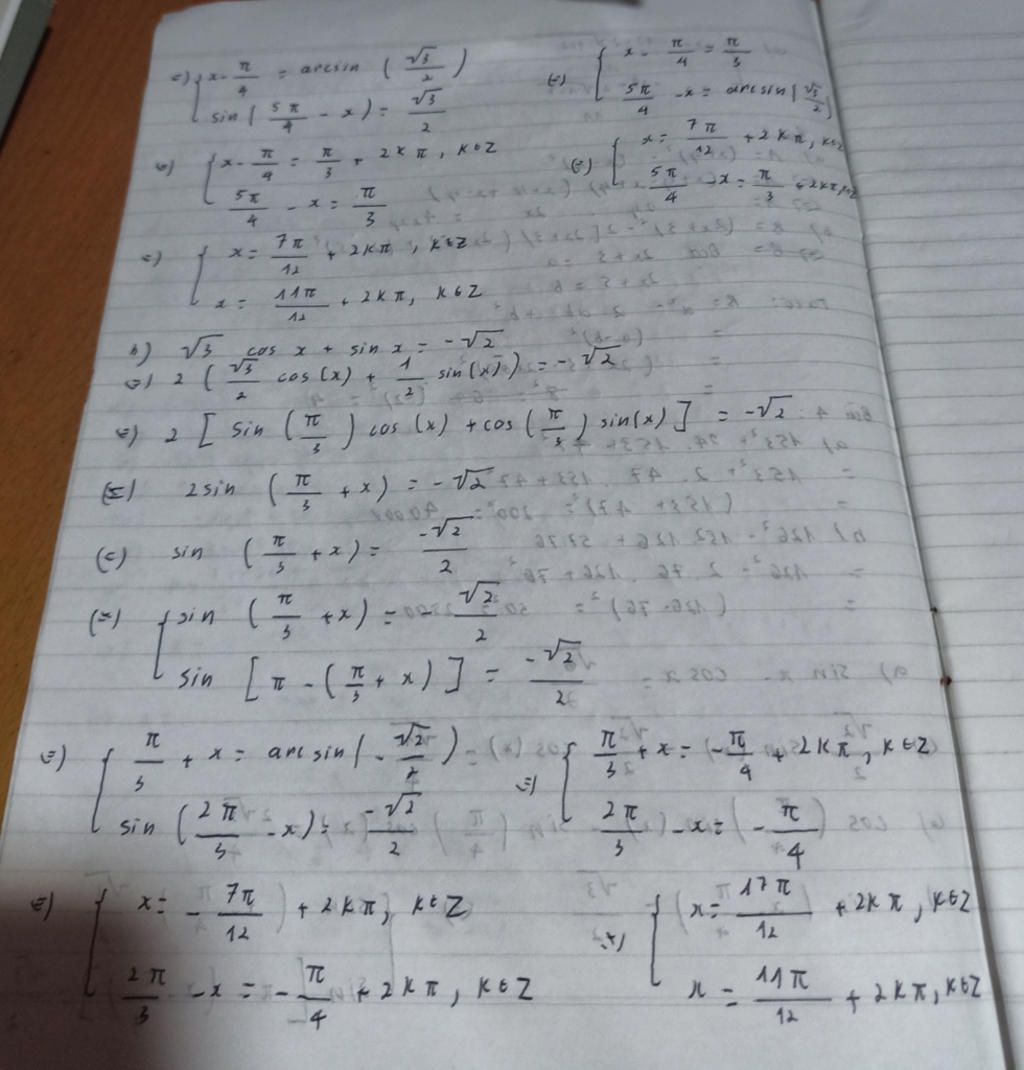 ⇔ { x - π/4 = arcsin (√3/2)
sin (5π/4 - x) = √3/2
⇔ { x - π/4 = π/3
5π/4 - x = arcsin (√3/2)
⇔ { x - π/4 = π/3 + 2kπ, k∈Z
5π/4 - x = π/3
⇔ { x = 7π/12 + 2kπ, k∈Z
5π/4 - x = π/3 + 2kπ, k∈Z
⇔ { x = 7π/12 + 2kπ, k∈Z
x = 11π/12 + 2kπ, k∈Z
b) √3 cos x + sin x = -√2
⇔ 2 (√3/2 cos(x) + 1/2 sin(x)) = -√2
⇔ 2 [sin (π/3) cos(x) + cos (π/3) sin(x)] = -√2
⇔ 2sin (π/3 + x) = -√2
⇔ sin (π/3 + x) = -√2/2
⇔ { sin (π/3 + x) = -√2/2
sin [π - (π/3 + x)] = -√2/2
⇔ { π/3 + x = arcsin (-√2/2)
sin (2π/3 - x) = -√2/2
⇔ { π/3 + x = -π/4 + 2kπ, k∈Z
2π/3 - x = (-π/4)
⇔ { x = -7π/12 + 2kπ, k∈Z
2π/3 - x = -π/4 + 2kπ, k∈Z
⇔ { x = 17π/12 + 2kπ, k∈Z
x = 11π/12 + 2kπ, k∈Z